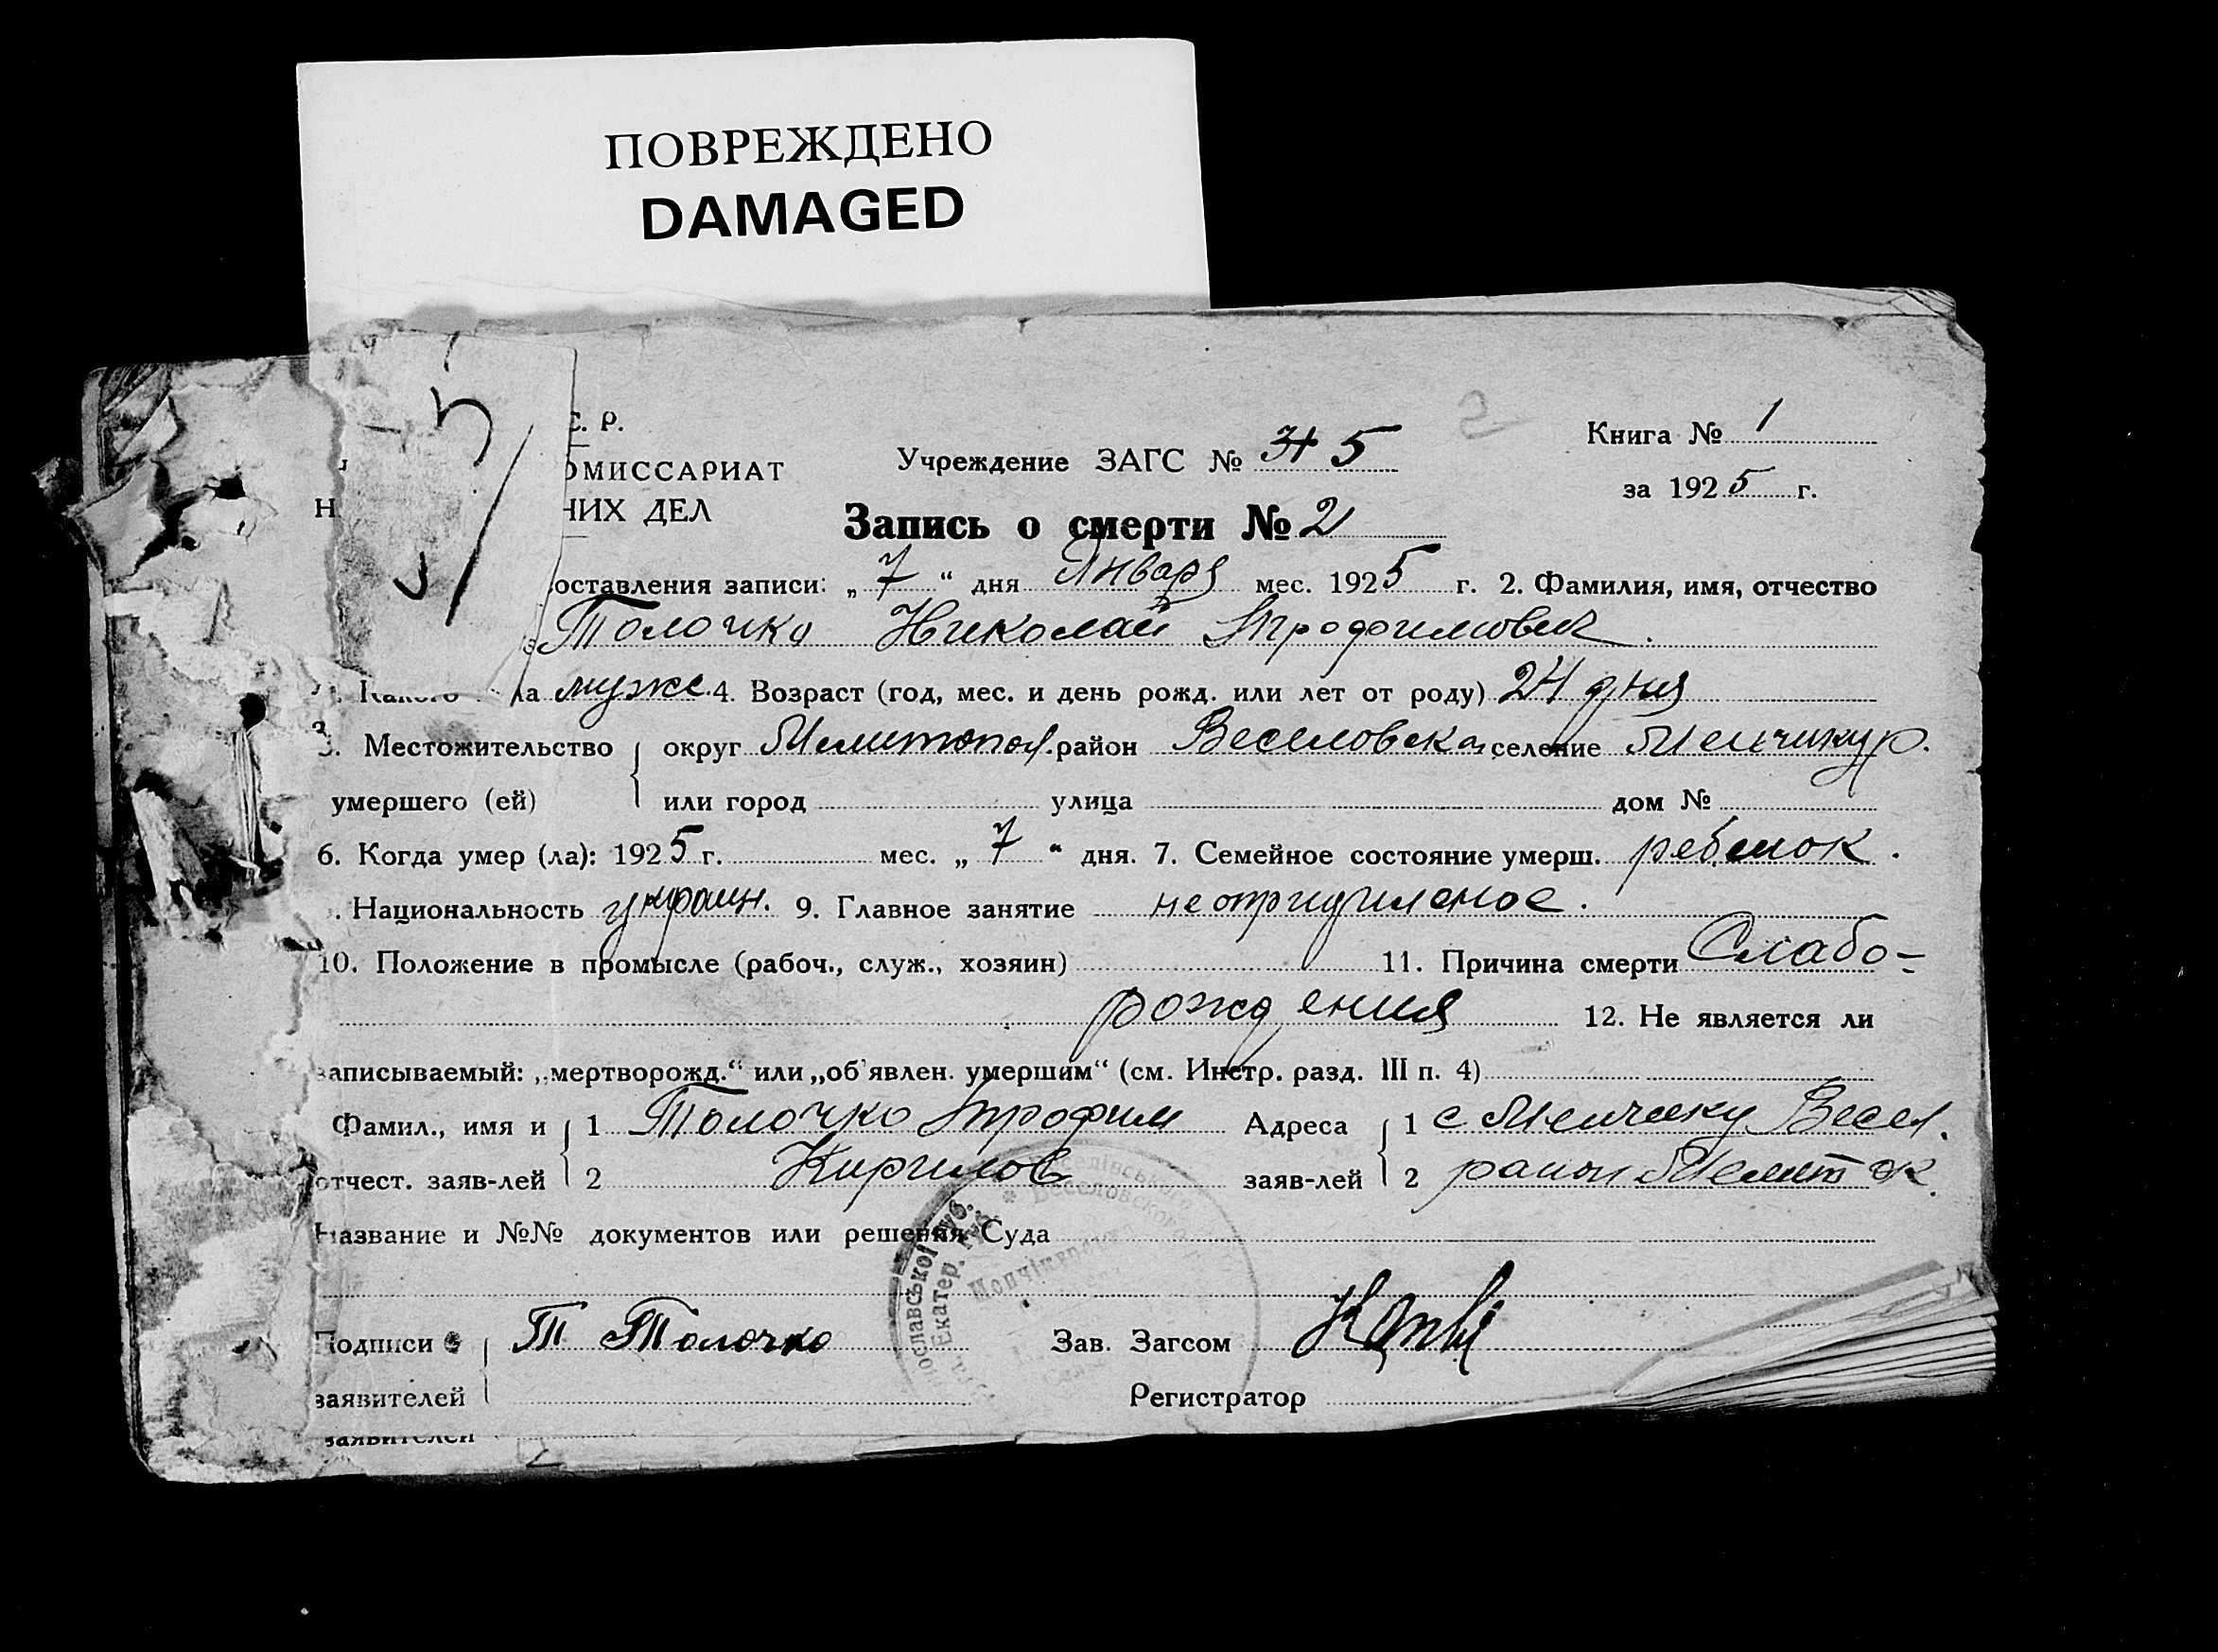 ПОВРЕЖДЕНО
DAMAGED
С. Р.
ОМИССАРИАТ
Учреждение ЗАГС № 5
2
Книга № 1
Н НИХ ДЕЛ
за 1925 г.
Запись о смерти № 2
оставления записи: „7“ дня Января мес. 1925 г. 2. Фамилия, имя, отчество
Толочко Николай Трофимович.
ла мужс. 4. Возраст (год, мес. и день рожд. или лет от роду) 24 дня
3. Местожительство { округ Мелитопол. район Веселовска селение Менчикур.
умершего (ей) или город улица дом №
6. Когда умер (ла): 1925 г. мес. „7“ дня. 7. Семейное состояние умерш. ребенок.
. Национальность украин. 9. Главное занятие
10. Положение в промысле (рабоч., служ., хозяин) 11. Причина смерти Слабо-
рождения 12. Не является ли
записываемый: „мертворожд.“ или „об'явлен. умершим“ (см. Инстр. разд. III п. 4)
Фамил., имя и { 1 Толочко Трофим Адреса { 1 с Менчику Весел.
отчест. заяв-лей 2 Кирилов заяв-лей 2 район Мелит ок.
Название и №№ документов или решения Суда
Подписи Т Толочко Зав. Загсом
заявителей Регистратор
заявителей